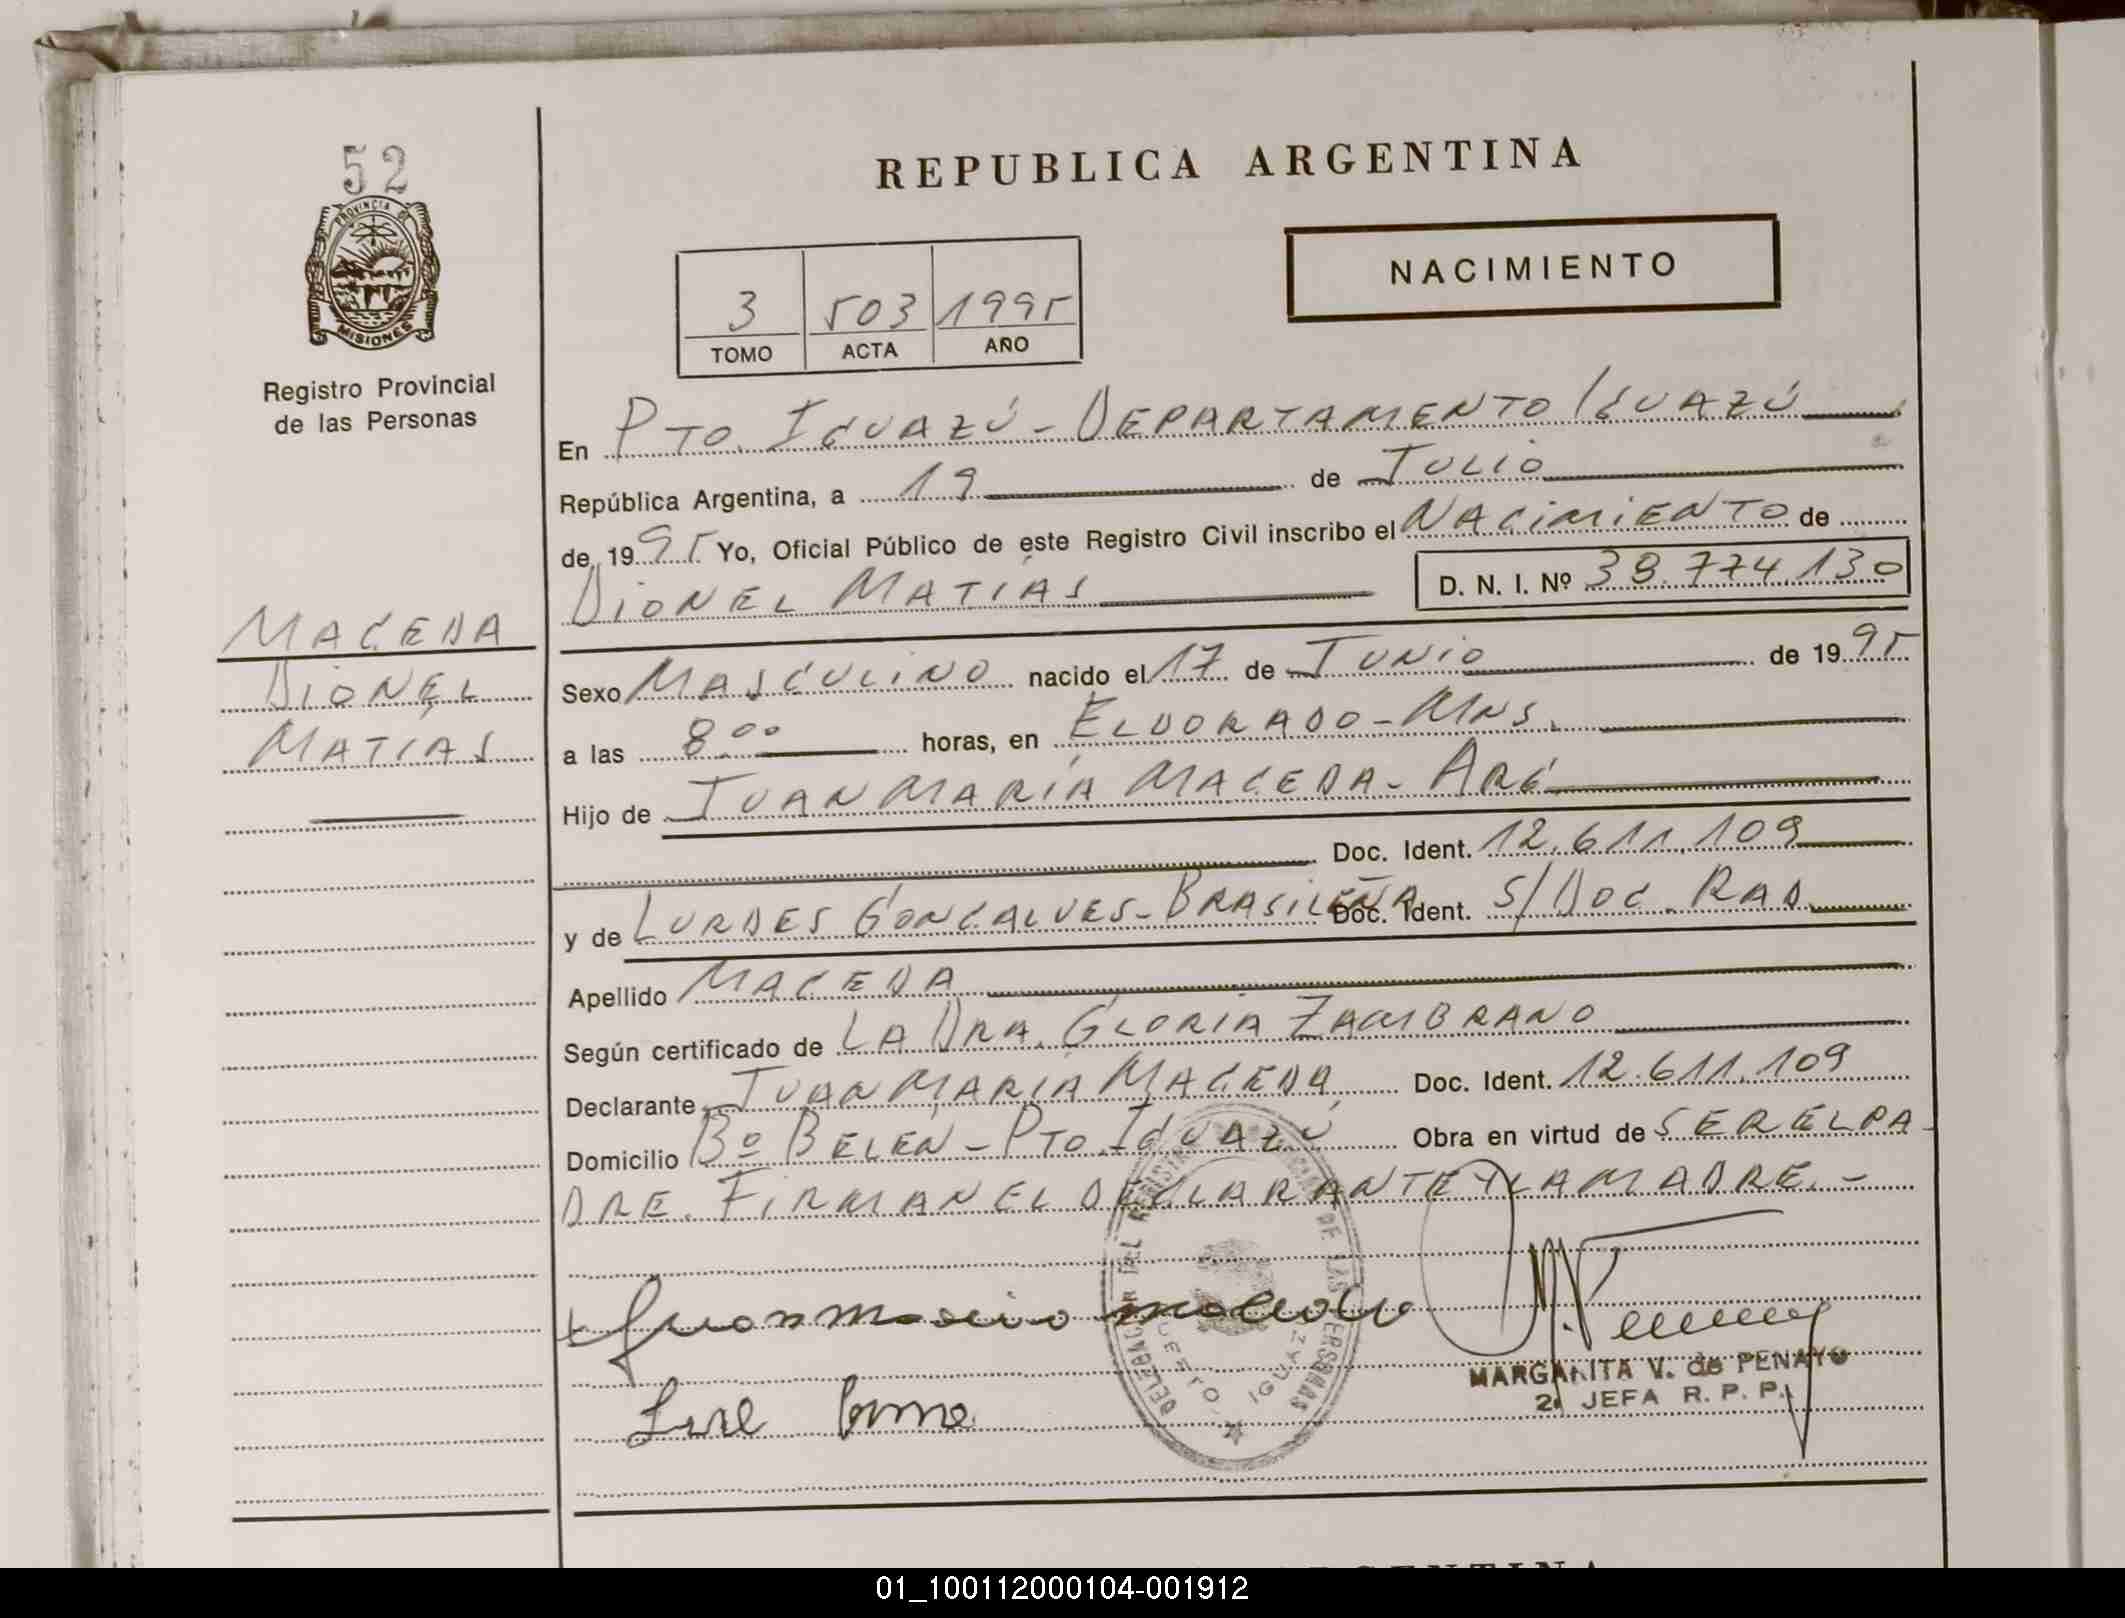 52
PROVINCIA DE
MISIONES
Registro Provincial
de las Personas
MACEDA
DIONEL
MATIAS
REPUBLICA ARGENTINA
NACIMIENTO
3 503 1995
TOMO ACTA AÑO
En PTO. IGUAZÚ - DEPARTAMENTO IGUAZÚ
República Argentina, a 19 de JULIO
de 1995 Yo, Oficial Público de este Registro Civil inscribo el NACIMIENTO de
DIONEL MATÍAS D. N. I. Nº 38.774.130
Sexo MASCULINO nacido el 17 de JUNIO de 1995
a las 8 00 horas, en ELDORADO - MNS.
Hijo de JUAN MARÍA MACEDA - ARG
Doc. Ident. 12.611.109
y de LURDES GONCALVES - BRASILEÑA Doc. Ident. S/DOC. RAD
Apellido MACEDA
Según certificado de LA DRA. GLORIA ZAMBRANO
Declarante JUAN MARIA MACEDA Doc. Ident. 12.611.109
Domicilio Bº BELÉN - PTO. IGUAZÚ Obra en virtud de SER EL PA-
DRE. FIRMAN EL DECLARANTE Y LA MADRE. -
DELEGACION DEL REGISTRO DE LAS PERSONAS
PUERTO IGUAZU
MARGARITA V. de PENAYO
2. JEFA R. P. P.
ARGENTINA
01_100112000104-001912